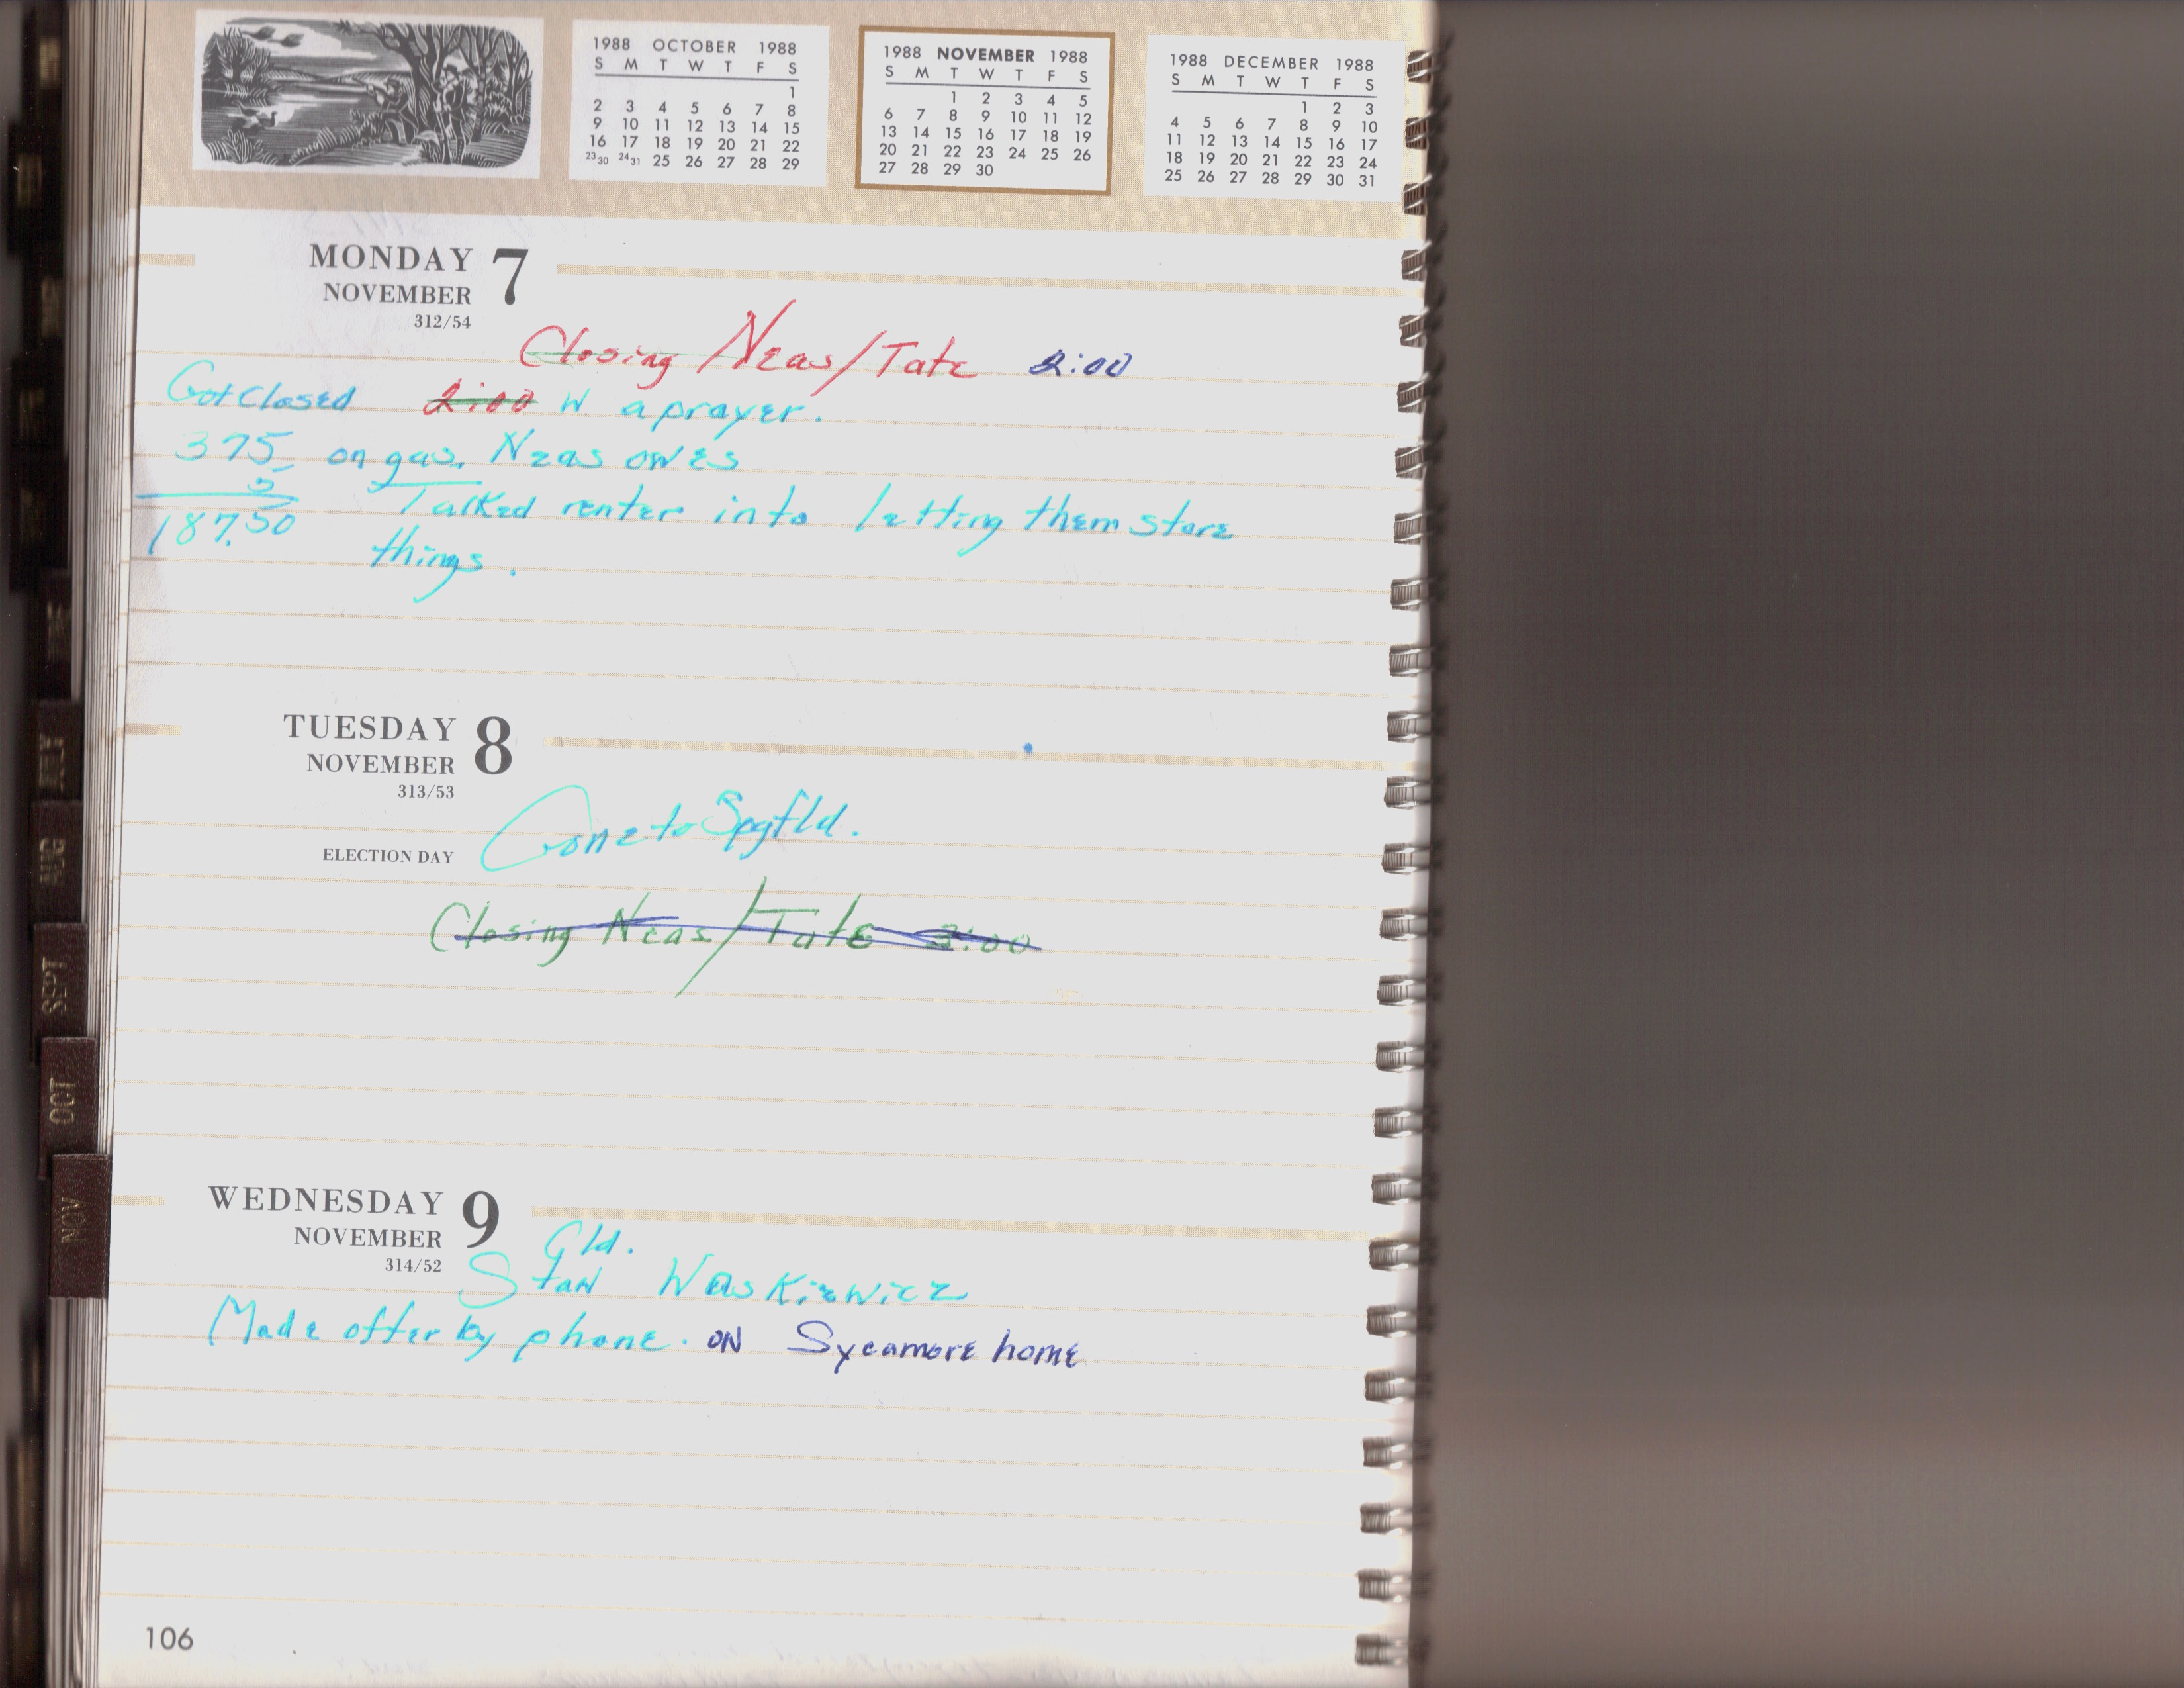 1988 OCTOBER 1988
S M T W T F S
1
2 3 4 5 6 7 8
9 10 11 12 13 14 15
16 17 18 19 20 21 22
23 30 24 31 25 26 27 28 29
1988 NOVEMBER 1988
S M T W T F S
1 2 3 4 5
6 7 8 9 10 11 12
13 14 15 16 17 18 19
20 21 22 23 24 25 26
27 28 29 30
1988 DECEMBER 1988
S M T W T F S
1 2 3
4 5 6 7 8 9 10
11 12 13 14 15 16 17
18 19 20 21 22 23 24
25 26 27 28 29 30 31
MONDAY 7
NOVEMBER
312/54
Closing Neas/Tate 2:00
Got Closed 2:00 W a prayer.
375 on gas. Neas owes
2 Talked renter into letting them store
187.50 things.
TUESDAY 8
NOVEMBER
313/53
Gone to Spgfld.
ELECTION DAY
Closing Neas/Tate 3:00
WEDNESDAY 9
NOVEMBER
314/52
Cld.
Stan Waskiewicz
Made offer by phone. ON Sycamore home
106
JULY
AUG
SEPT
OCT
NOV